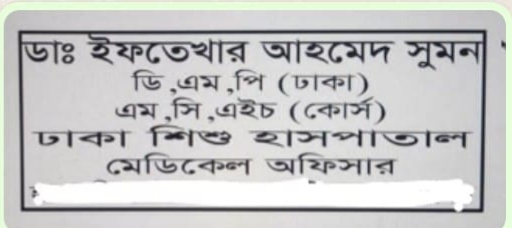 ডাঃ ইফতেখার আহমেদ সুমন
ডি,এম,পি (ঢাকা)
এম,সি,এইচ (কোর্স)
ঢাকা শিশু হাসপাতাল
মেডিকেল অফিসার